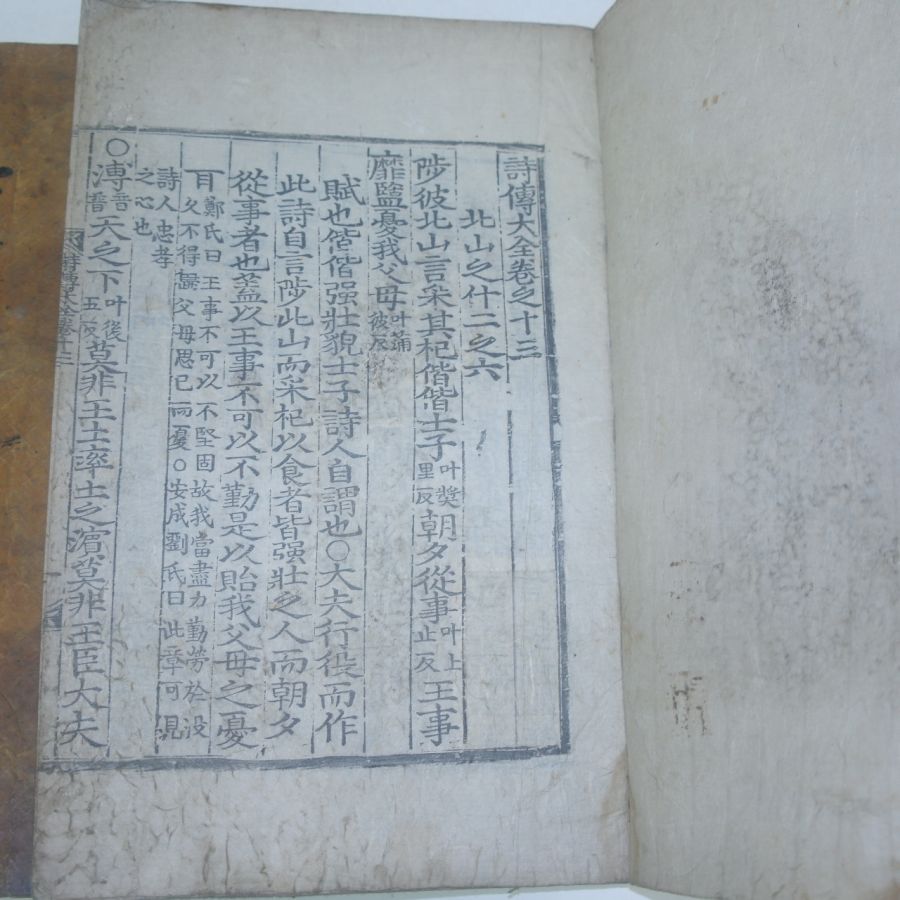 詩傳大全卷之十三
北山之什二之六
陟彼北山言采其杞偕偕士子叶獎里反朝夕從事叶上止反王事
靡盬憂我父母叶滿彼反
賦也偕偕强壯貌士子詩人自謂也○大夫行役而作
此詩自言陟北山而采杞以食者皆强壯之人而朝夕
從事者也盖以王事不可以不勤是以貽我父母之憂
耳鄭氏曰王事不可以不堅固故我當盡力勤勞於役
久不得歸父母思已而憂○安成劉氏曰此章可見
詩人忠孝
之心也
○溥音普天之下叶後五反莫非王土率土之濱莫非王臣大夫
詩傳大全卷十三